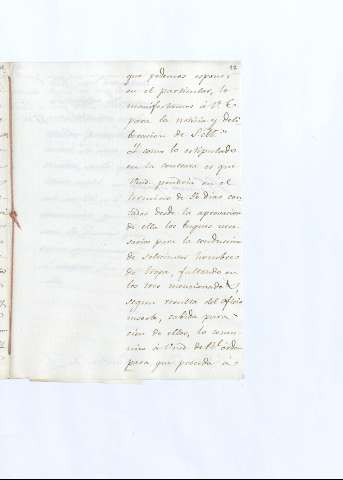 12
que podemos esponer
en el particular, lo
manifestamos á V. E.
para la noticia y deli
beracion de S. M.
Y como lo estipulado
en la contrata es que
Vmd. pondría en el
termino de 56 dias con
tados desde la aprovacion
de ella los buques nece
sarios para la conduccion
de setecientos hombres
de tropa, faltando en
los tres mencionados,
segun resulta del oficio
inserto, cabida para
cien de ellos, lo comu
nico á Vmd. de Rl. orden
para que proceda á